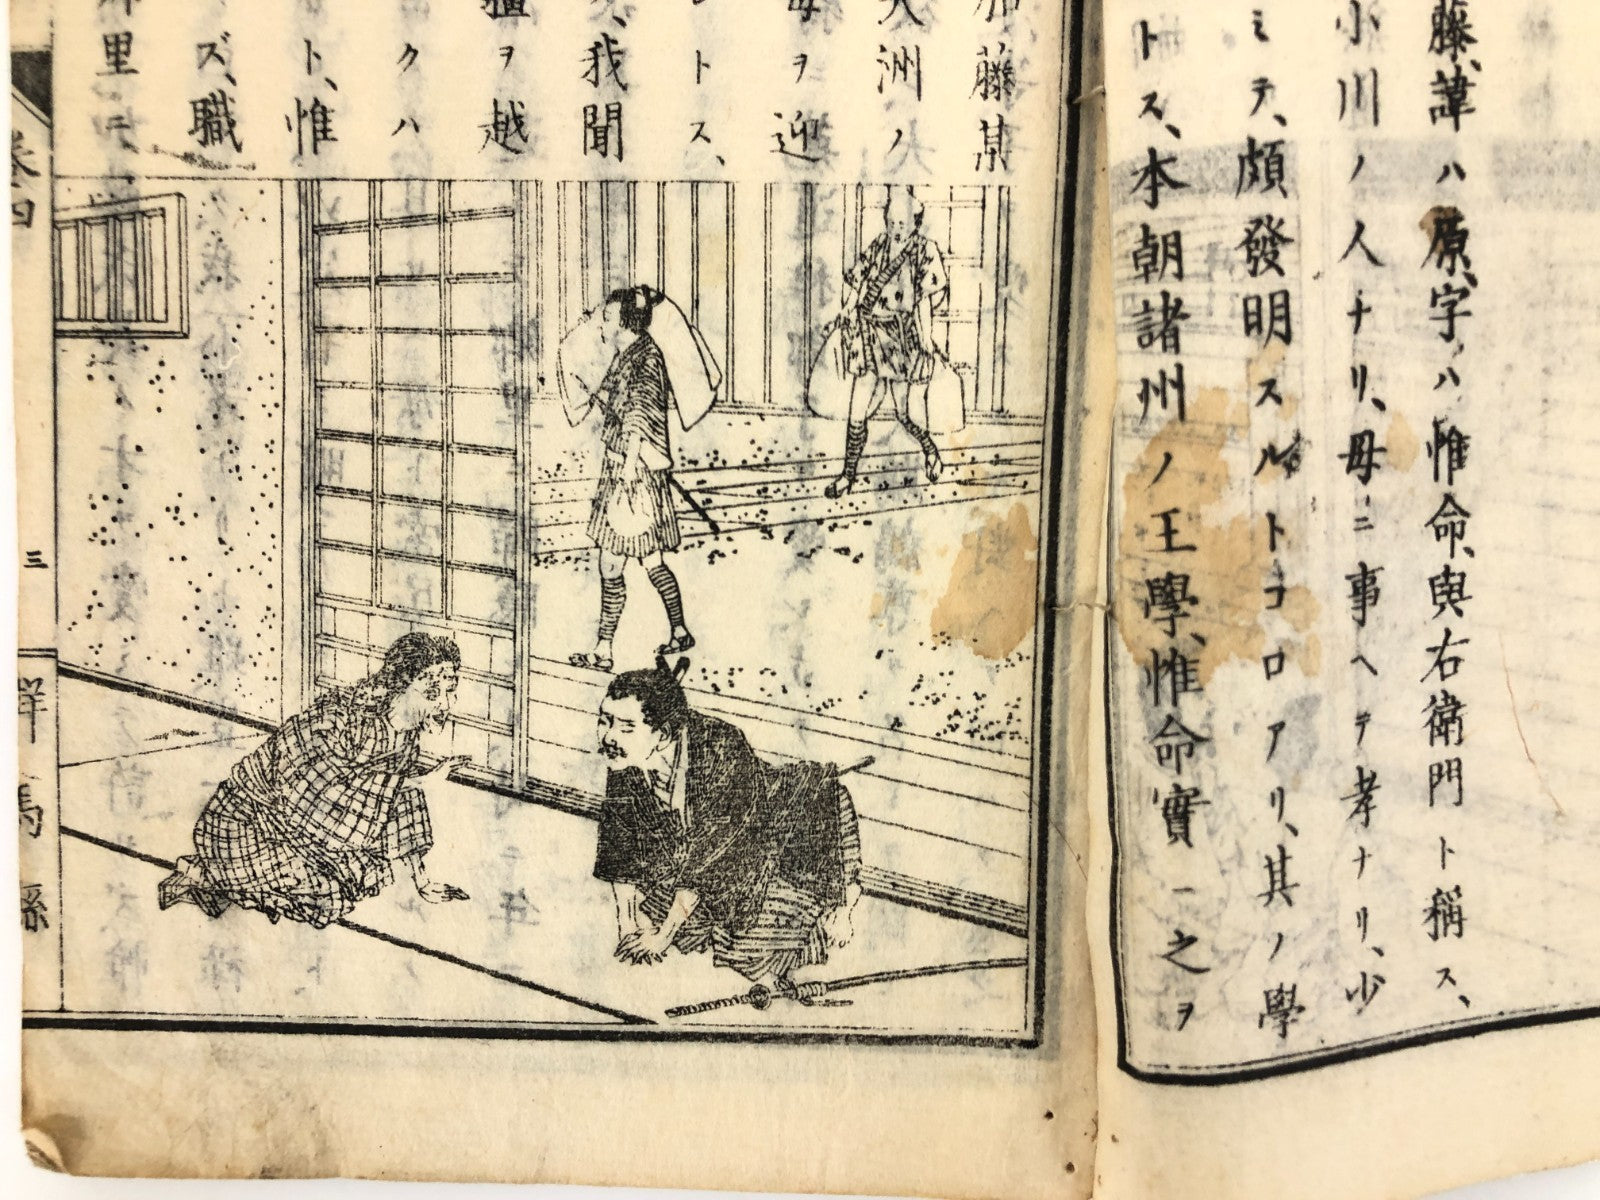 藤、諱ハ原、字ハ惟命、與右衛門ト稱ス、
小川ノ人ナリ、母ニ事ヘテ孝ナリ、少
ミテ、頗發明スルトコロアリ、其ノ學
トス、本朝諸州ノ王學、惟命實ニ之ヲ
加藤某
大洲ノ
母ヲ迎
トス、
我聞
疆ヲ越
クハ
ト、惟
ズ、職
里ニ
卷四
三
群馬縣